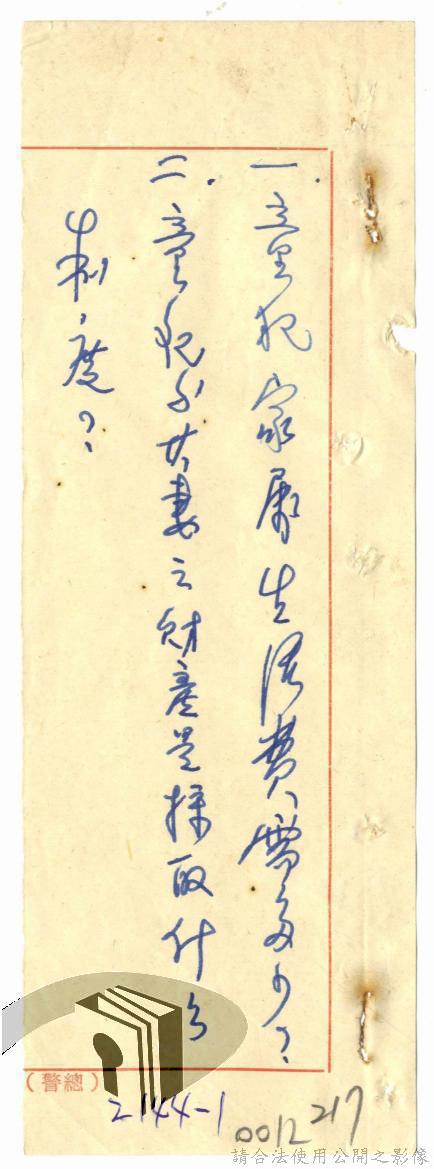 一.童犯家屬生活費需多少？
二.童犯與其妻之財產是採取什么
制度？
（總警）
2144-1
0012
217
請合法使用公開之影像